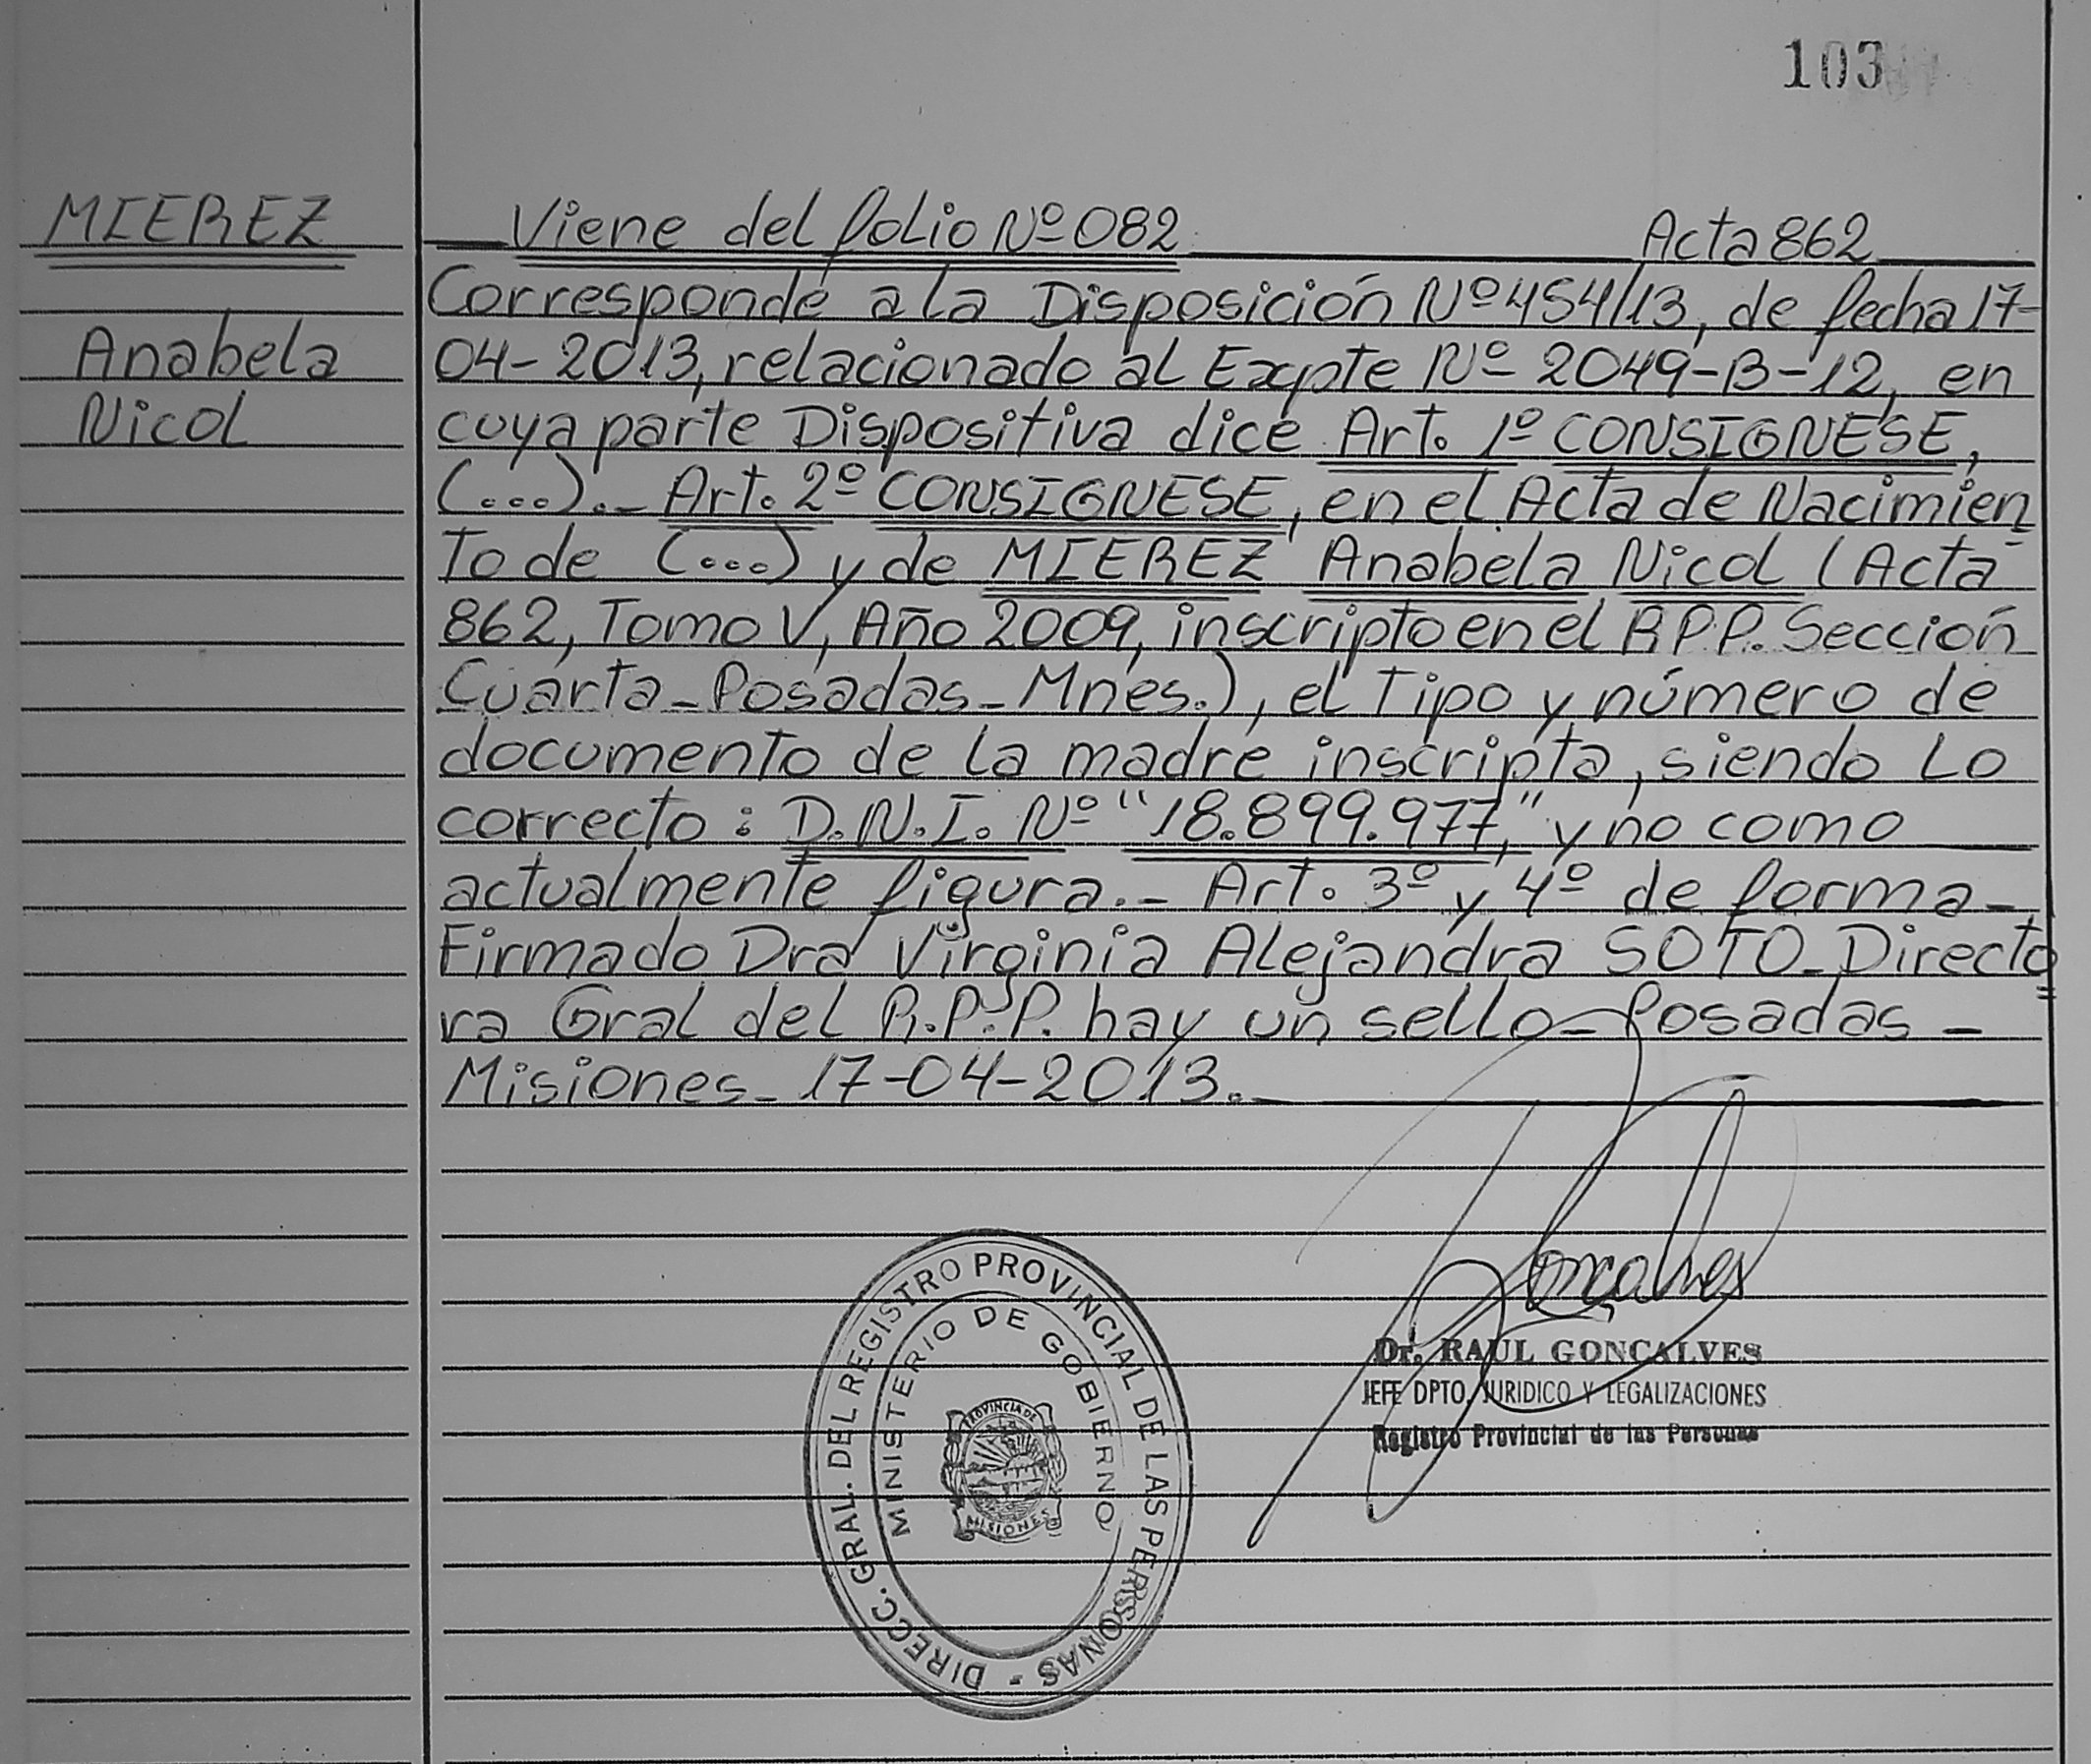 103
MIEREZ
Anabela
Nicol
Viene del folio Nº 082 Acta 862
Corresponde a la Disposición Nº 454/13, de fecha 17-
04-2013, relacionado al Expte Nº 2049-B-12, en
cuya parte Dispositiva dice Art. 1º CONSIGNESE,
(...).- Art. 2º CONSIGNESE, en el Acta de Nacimien
to de (...) y de MIEREZ Anabela Nicol (Acta
862, Tomo V, Año 2009, inscripto en el R.P.P. Sección
Cuarta-Posadas-Mnes.), el Tipo y número de
documento de la madre inscripta, siendo lo
correcto: D.N.I. Nº "18.899.977," y no como
actualmente figura.- Art. 3º y 4º de forma-
Firmado Dra Virginia Alejandra SOTO-Directo
ra Gral del R.P.P. hay un sello-Posadas-
Misiones-17-04-2013.-
Goncalves
Dr. RAUL GONCALVES
JEFE DPTO. JURIDICO Y LEGALIZACIONES
Registro Provincial de las Personas
DIRECC. GRAL. DEL REGISTRO PROVINCIAL DE LAS PERSONAS -
MINISTERIO DE GOBIERNO
PROVINCIA DE
MISIONES